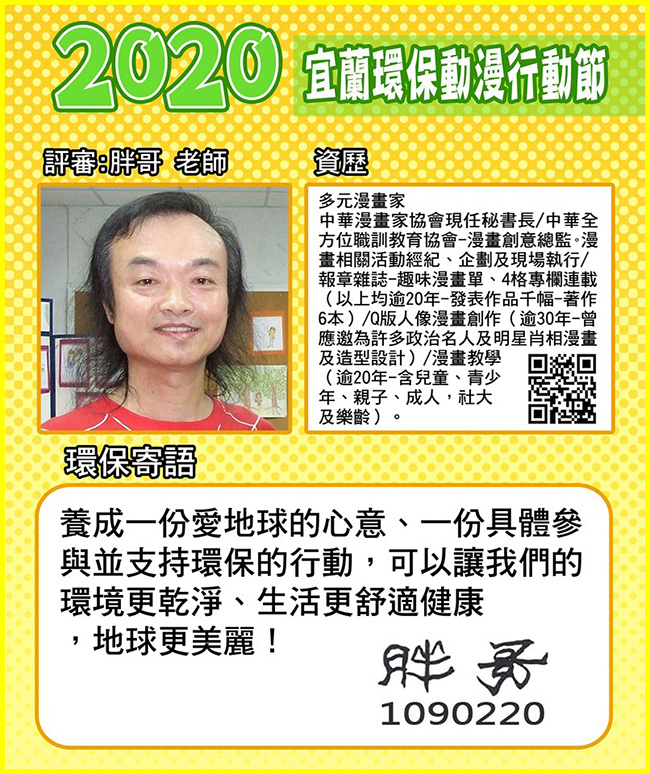 2020 宜蘭環保動漫行動節
評審:胖哥 老師
資歷
多元漫畫家
中華漫畫家協會現任秘書長/中華全
方位職訓教育協會-漫畫創意總監。漫
畫相關活動經紀、企劃及現場執行/
報章雜誌-趣味漫畫單、4格專欄連載
(以上均逾20年-發表作品千幅-著作
6本)/Q版人像漫畫創作(逾30年-曾
應邀為許多政治名人及明星肖相漫畫
及造型設計)/漫畫教學
(逾20年-含兒童、青少
年、親子、成人,社大
及樂齡)。
環保寄語
養成一份愛地球的心意、一份具體參
與並支持環保的行動,可以讓我們的
環境更乾淨、生活更舒適健康
,地球更美麗!
胖哥
1090220